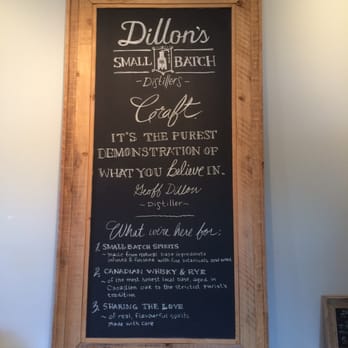 Dillon's
SMALL BATCH
-Distillers-
Craft
IT'S THE PUREST
DEMONSTRATION OF
WHAT YOU Believe IN.
Geoff Dillon
-Distiller-
What we're here for:
1. SMALL BATCH SPIRITS
- made from natural base ingredients
infused & finished with fine botanicals and wood
2. CANADIAN WHISKY & RYE
- of the most honest local kind, aged in
Canadian oak to the strictest purist's
tradition
3. SHARING THE LOVE
- of real, flavourful spirits
made with care